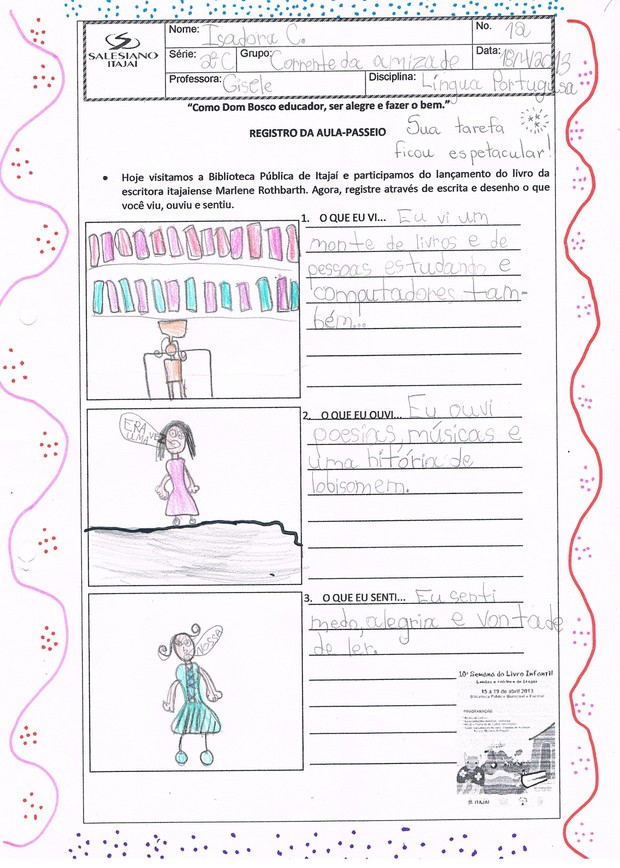 SALESIANO
ITAJAÍ
Nome: Isadora C.
No. 12
Série: 2º C Grupo: Corrente da amizade Data: 18/4/2013
Professora: Gisele Disciplina: Língua Portuguesa
"Como Dom Bosco educador, ser alegre e fazer o bem."
REGISTRO DA AULA-PASSEIO
Sua tarefa
ficou espetacular!
• Hoje visitamos a Biblioteca Pública de Itajaí e participamos do lançamento do livro da
escritora itajaiense Marlene Rothbarth. Agora, registre através de escrita e desenho o que
você viu, ouviu e sentiu.
1. O QUE EU VI... Eu vi um
monte de livros e de
pessoas estudando e
computadores tam-
bém...
ERA
UMA VEZ
2. O QUE EU OUVI... Eu ouvi
poesias, músicas e
uma hitória de
lobisomem.
3. O QUE EU SENTI... Eu senti
medo, alegria e vontade
de ler.
NOSSA
10ª Semana do Livro Infantil
15 a 19 de abril 2013
Biblioteca Pública Municipal e Escolar
PROGRAMAÇÃO
ITAJAÍ